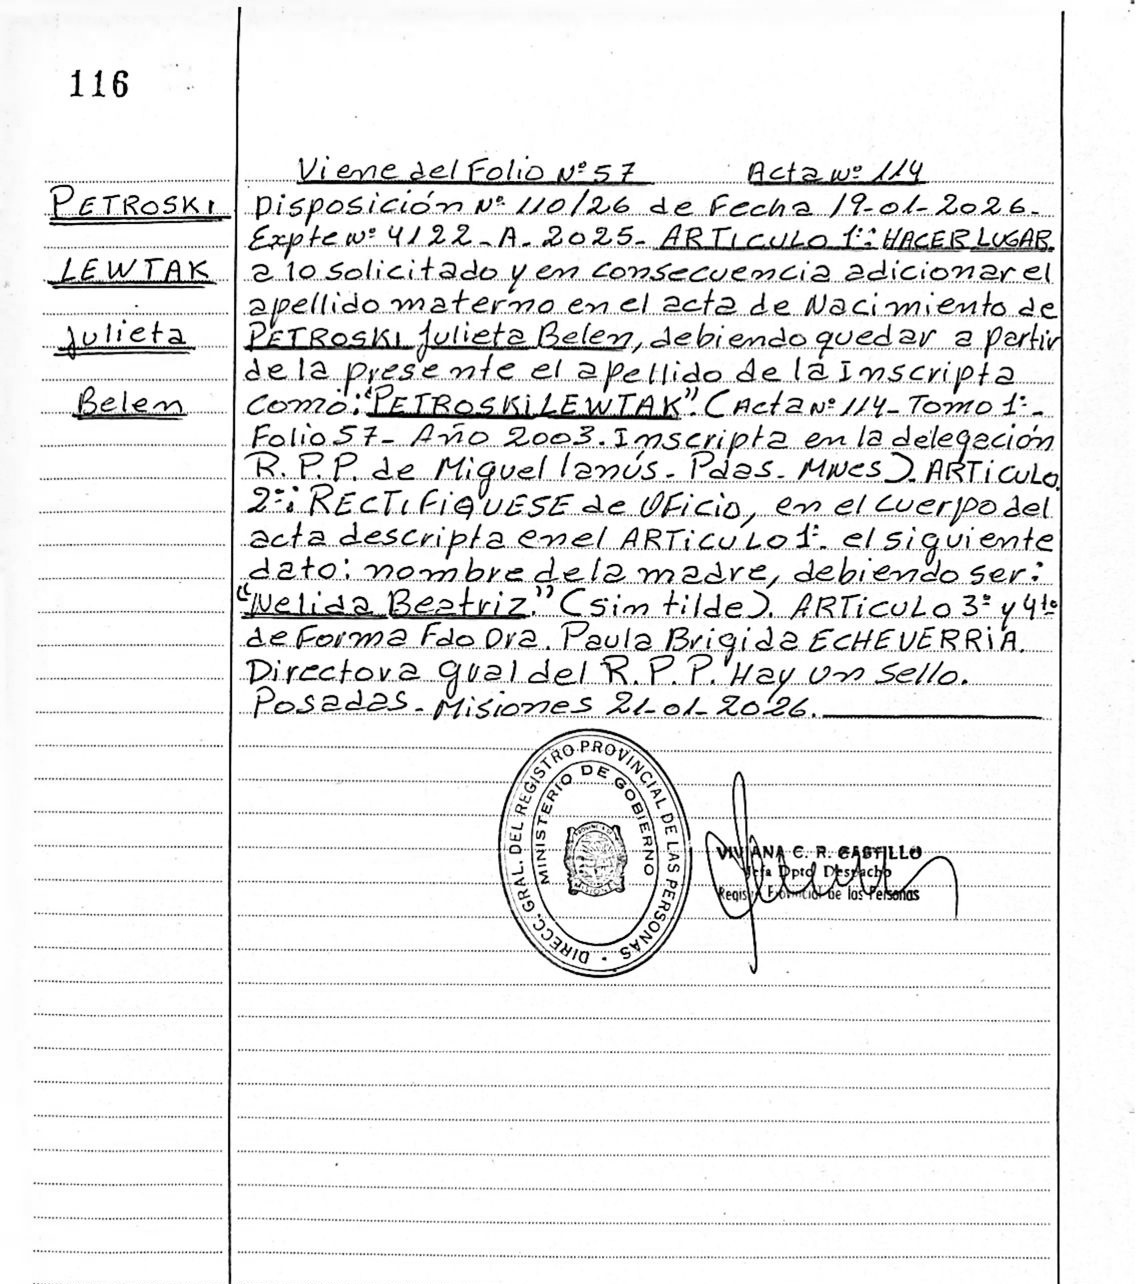 116
Viene del Folio Nº 57 Acta Nº 114
PETROSKI
LEWTAK
Julieta
Belen
Disposición Nº 110/26 de Fecha 19-01-2026-
Expte Nº 4122-A-2025- ARTICULO 1º: HACER LUGAR
a lo solicitado y en consecuencia adicionar el
apellido materno en el acta de Nacimiento de
PETROSKI Julieta Belen, debiendo quedar a partir
de la presente el apellido de la Inscripta
como: "PETROSKI LEWTAK". (Acta Nº 114- Tomo 1º-
Folio 57- Año 2003. Inscripta en la delegación
R.P.P. de Miguel lanús- Pdas. MNes). ARTICULO
2º: RECTIFIQUESE de Oficio, en el cuerpo del
acta descripta en el ARTICULO 1º- el siguiente
dato: nombre de la madre, debiendo ser:
"Nelida Beatriz." (sin tilde). ARTICULO 3º y 4to
de Forma Fdo Dra. Paula Brigida ECHEVERRIA.
Directora gual del R.P.P. Hay un sello.
Posadas- Misiones 21-01-2026.
DIRECC. GRAL. DEL REGISTRO PROVINCIAL DE LAS PERSONAS
MINISTERIO DE GOBIERNO
VIVIANA C. R. CASTILLO
Jefa Dpto Despacho
Registro Provincial de las Personas